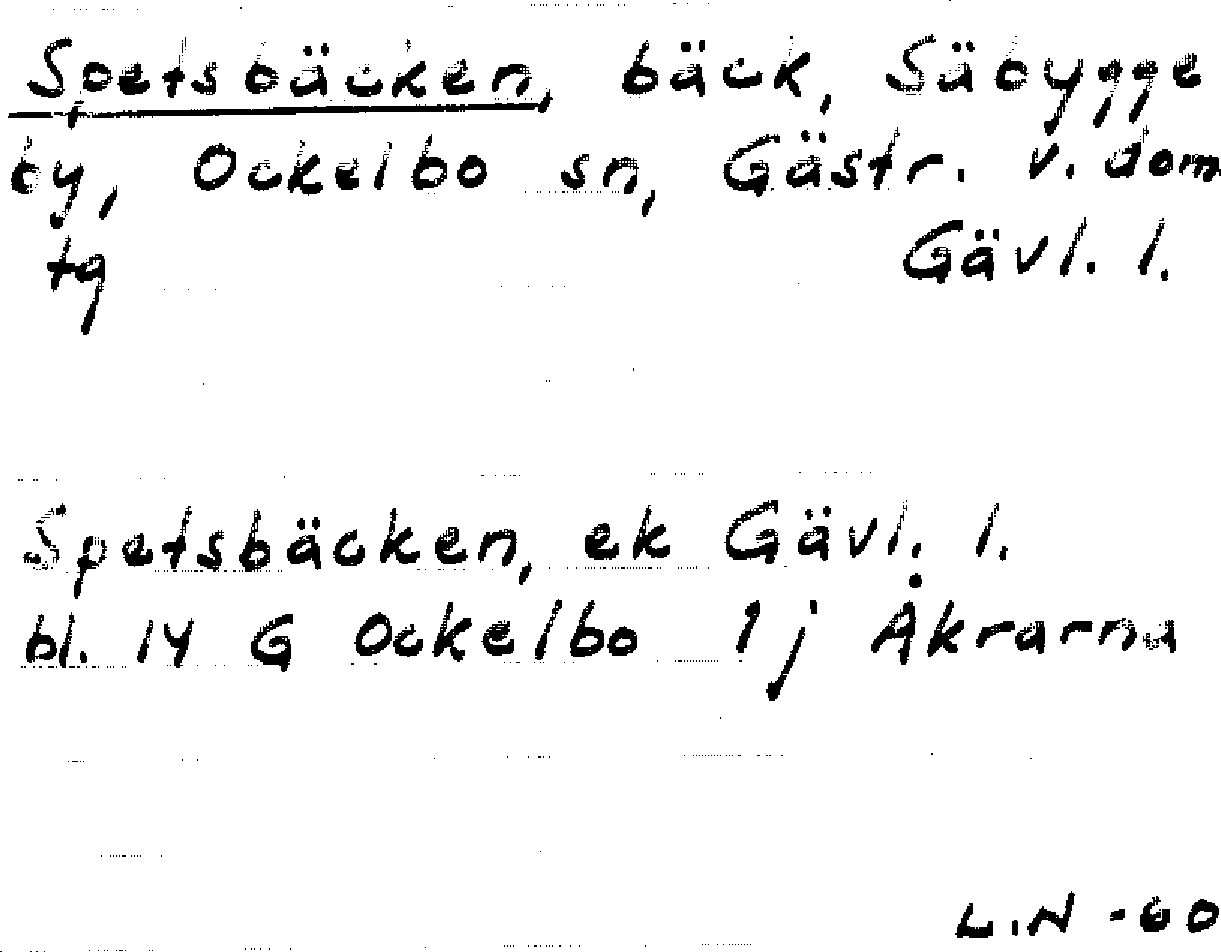 Spetsbäcken, bäck, Säbygge
by, Ockelbo sn, Gästr. v. dom
tg Gävl. l.
Spetsbäcken, ek Gävl. l.
bl. 14 G Ockelbo 1 j Åkrarna
L.N -60